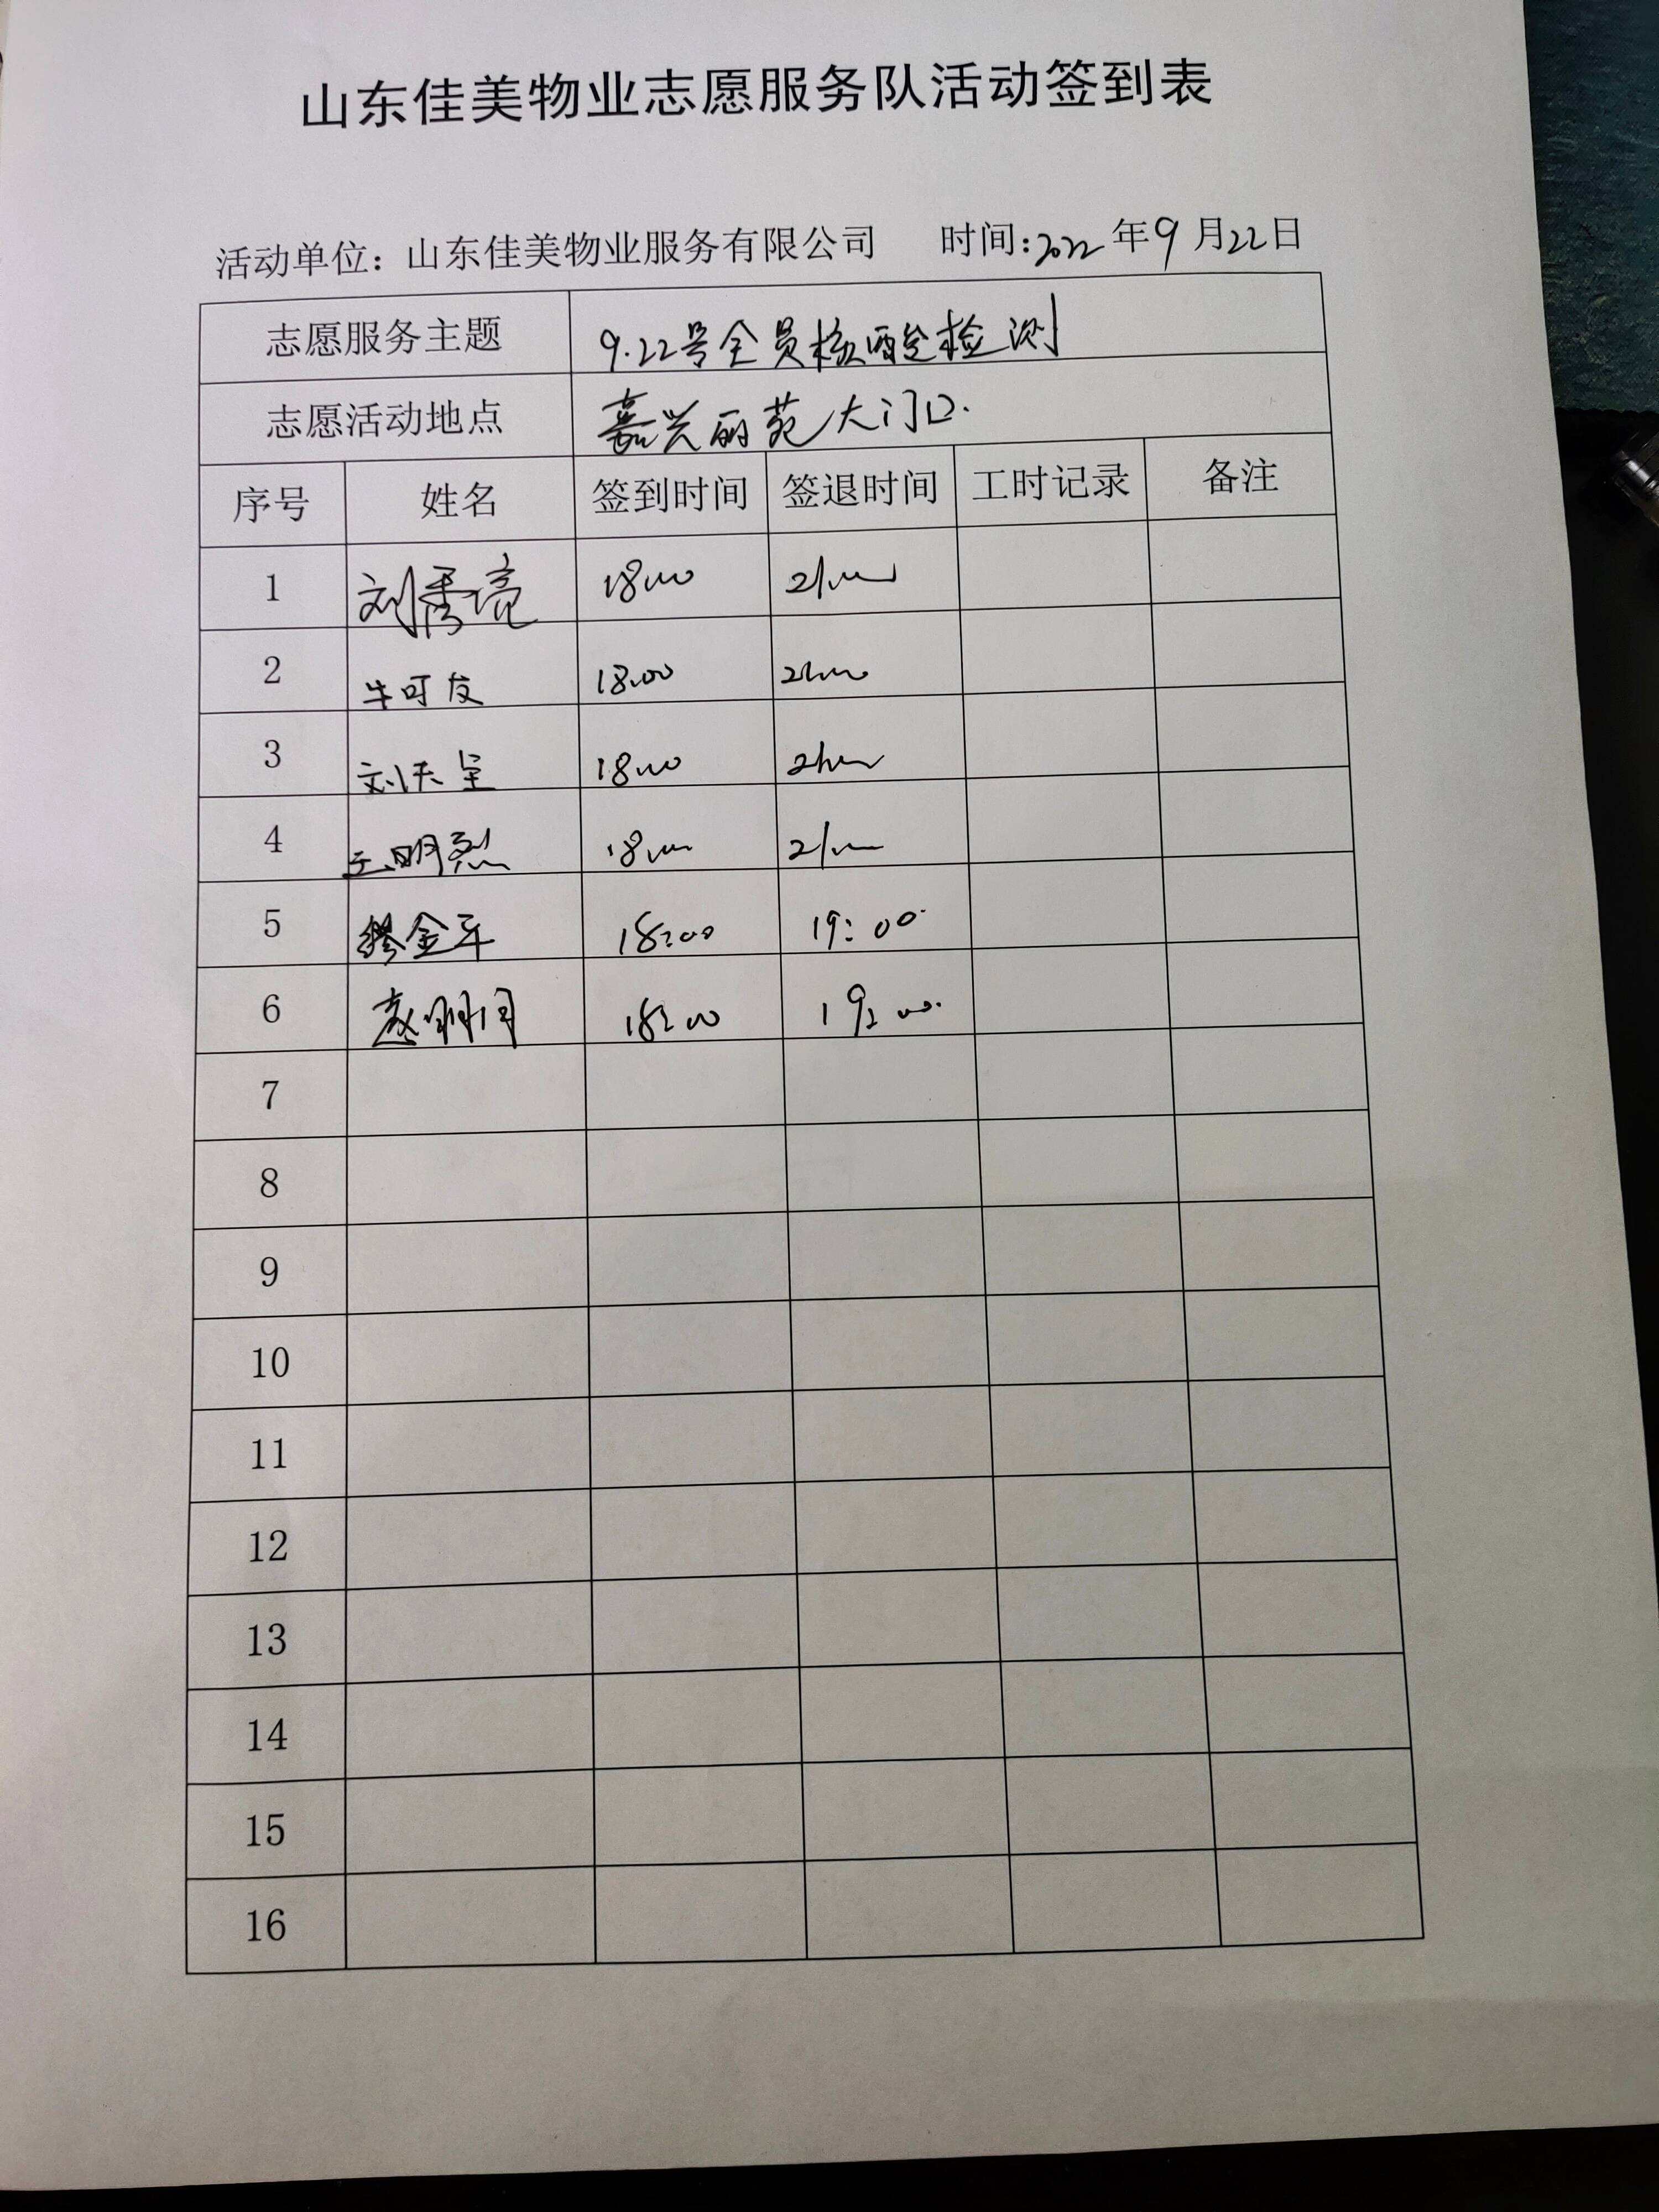 山东佳美物业志愿服务队活动签到表
活动单位：山东佳美物业服务有限公司 时间:2022年9月22日
志愿服务主题 9.22号全员核酸检测
志愿活动地点 嘉兴丽苑大门口.
序号 姓名 签到时间 签退时间 工时记录 备注
1 刘秀亮 18:00 21:00
2 牛可友 18:00 21:00
3 刘天 18:00 21:00
4 王明烈 18:00 21:00
5 缪金平 18:00 19:00
6 赵 18:00 19:00
7
8
9
10
11
12
13
14
15
16